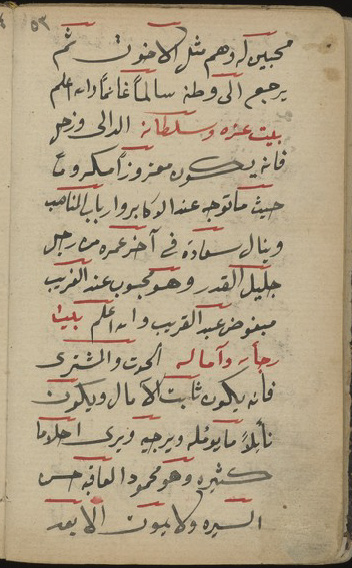 ٥٣
محبين له وهم مثل الاخوت ثم
يرجع الى وطنه سالماً غانماً والله اعلم
بيت عزه وسلطانه الدالى وزحل
فانه يكون معزوزاً مكروماً
حيث ما توجه عند الاكابر وارباب المناصب
وينال سعادة فى آخر عمره من رجل
جليل القدر وهو محبوب عند الغريب
مبغوض عند القريب والله اعلم بيت
رجائه وآماله الحوت والمشترى
فانه يكون ثابت الآمال ويكون
نايلاً ما يومله ويرجيه ويرى احلاما
كثيره وهو محمود العاقبه حسن
السيره ولا يموت الا بعد